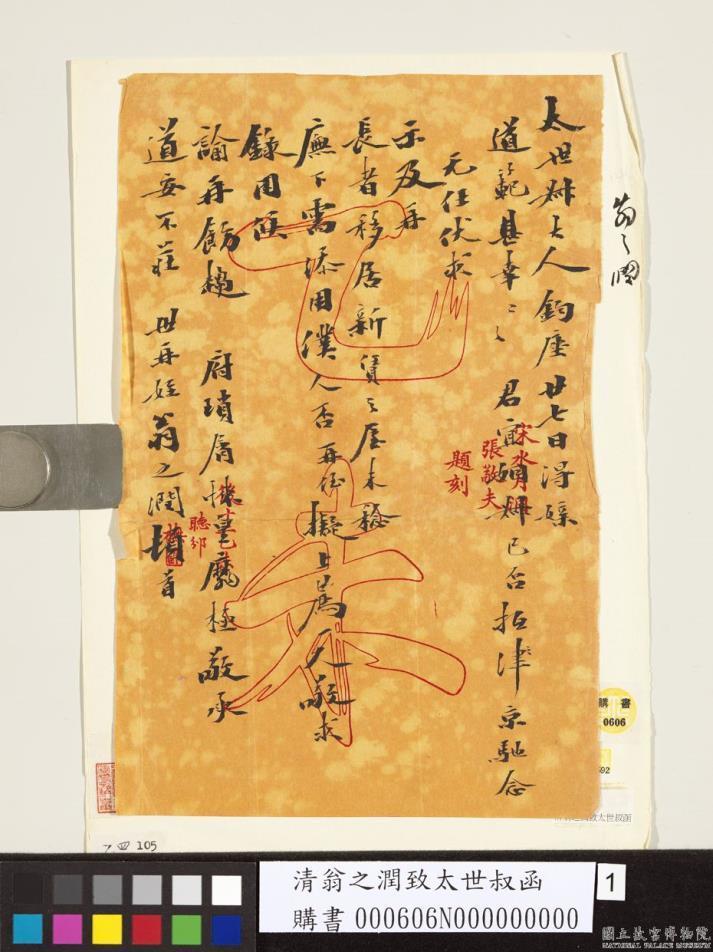 太世叔大人鈞座廿七日得
道範甚幸〻君
已否抵津京馳念
无任伏求
示及再
長者移居新賃之屋未稔
廡下需添用僕人否再侄擬上荐一人敬求
錄用候
諭再飭趨
府瑣屑
極敬承
道安不莊
世再姪翁之潤頓首
張敬夫
題刻
聽邠
翁之潤
購書
0606
105
清翁之潤致太世叔函
購書000606N000000000
1
國立故宮博物院
NATIONAL PALACE MUSEUM